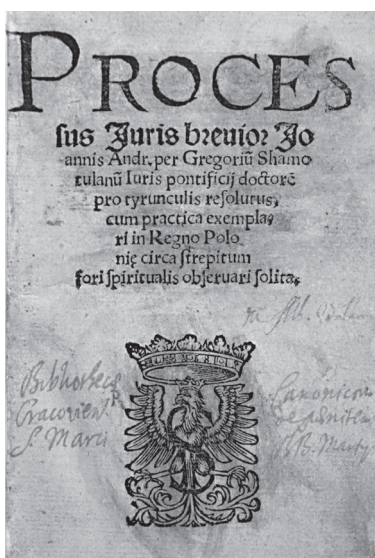 PROCES
sus Juris breuior Jo
annis Andr. per Gregoriū Shamo
tulanū Iuris pontificij doctorē
pro tyrunculis resolutus,
cum practica exempla,
ri in Regno Polo
nię circa strepitum
fori spiritualis obseruari solita,
Bibliothecę
Cracovien
S. Marci
Canonicor
de pœniten
B. Marty